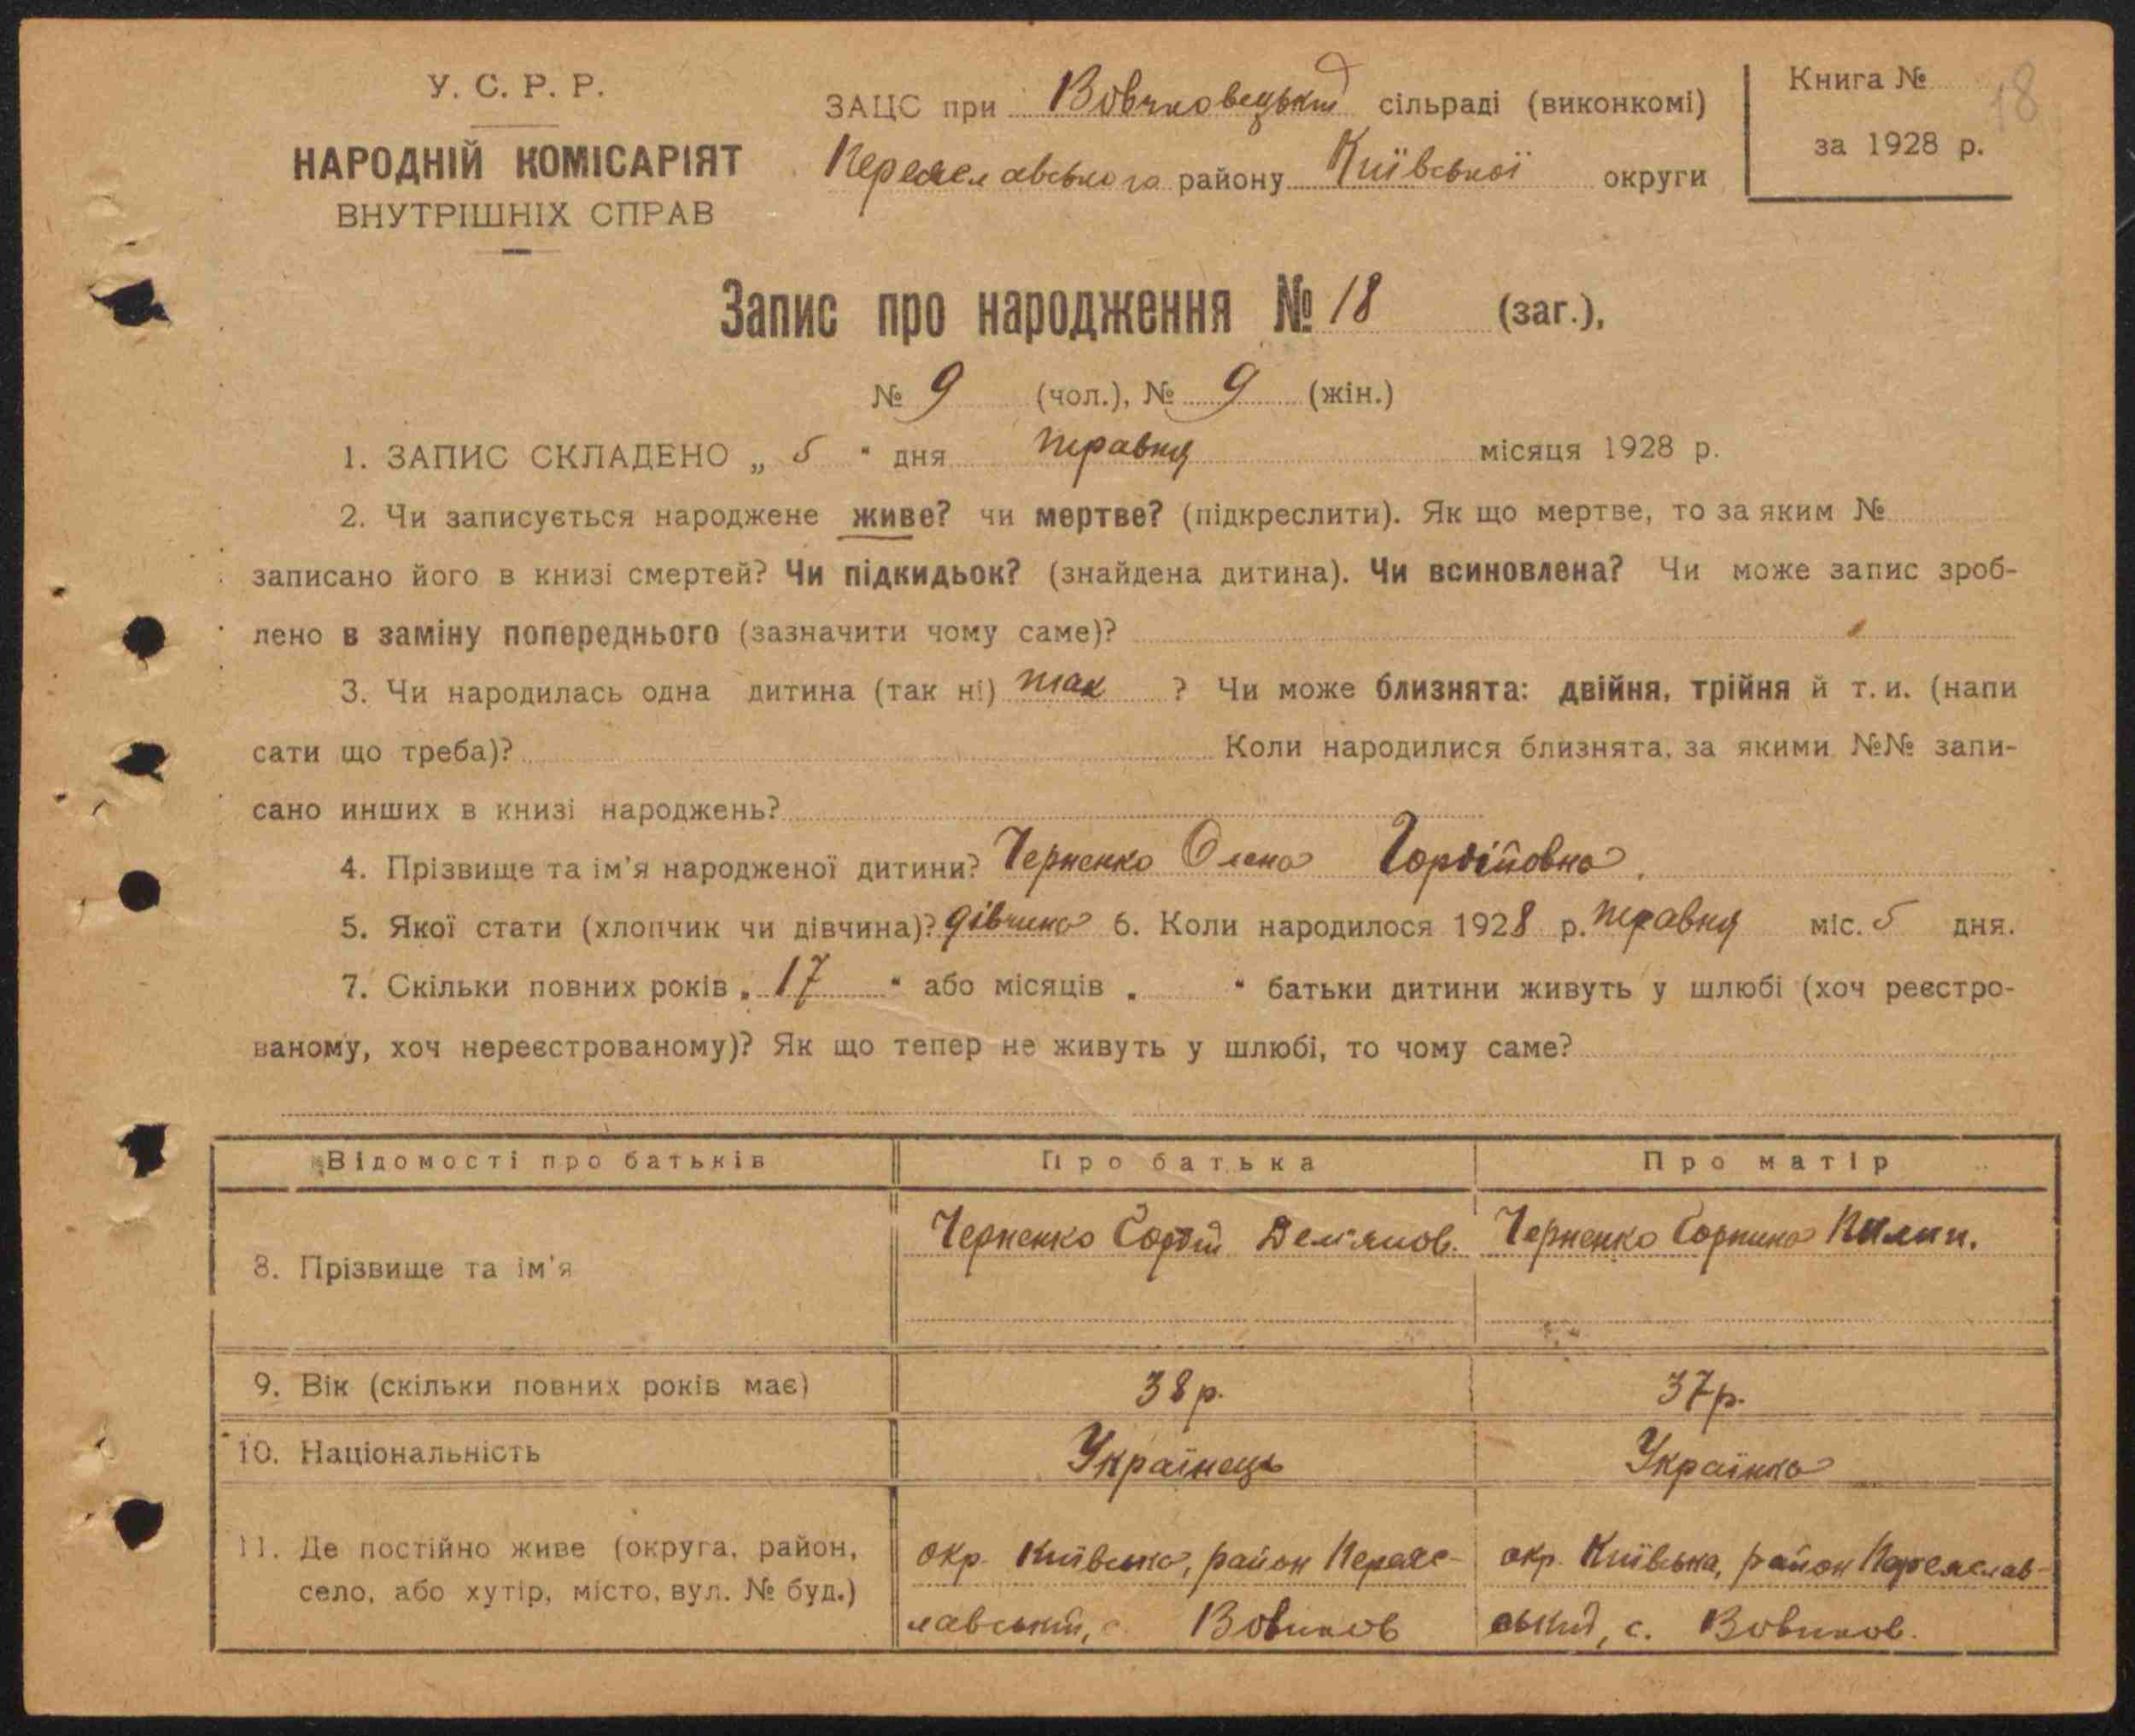 У. С. Р. Р.
НАРОДНІЙ КОМІСАРІЯТ
ВНУТРІШНІХ СПРАВ
ЗАЦС при Вовчковецькій сільраді (виконкомі)
Переяславського району Київської округи
Книга № 18
за 1928 р.
Запис про народження № 18 (заг.),
№ 9 (чол.), № 9 (жін.)
1. ЗАПИС СКЛАДЕНО „ 5 " дня травня місяця 1928 р.
2. Чи записується народжене живе? чи мертве? (підкреслити). Як що мертве, то за яким №
записано його в книзі смертей? Чи підкидьок? (знайдена дитина). Чи всиновлена? Чи може запис зроб-
лено в заміну попереднього (зазначити чому саме)?
3. Чи народилась одна дитина (так ні) так ? Чи може близнята: двійня, трійня й т. и. (напи
сати що треба)? Коли народилися близнята, за якими №№ запи-
сано инших в книзі народжень?
4. Прізвище та ім'я народженої дитини? Черненко Олена Гордіївна.
5. Якої стати (хлопчик чи дівчина)? дівчина 6. Коли народилося 1928 р. травня міс. 5 дня.
7. Скільки повних років „ 17 " або місяців „ " батьки дитини живуть у шлюбі (хоч реєстро-
ваному, хоч нереєстрованому)? Як що тепер не живуть у шлюбі, то чому саме?
Відомості про батьків Про батька Про матір
8. Прізвище та ім'я Черненко Гордій Дем'янов. Черненко Горпина Пилип.
9. Вік (скільки повних років має) 38 р. 37 р.
10. Національність Українець Українка
11. Де постійно живе (округа, район, окр. Київська, район Переяс- окр. Київська, район Переяслав-
село, або хутір, місто, вул. № буд.) лавський, с. Вовчков ський, с. Вовчков.